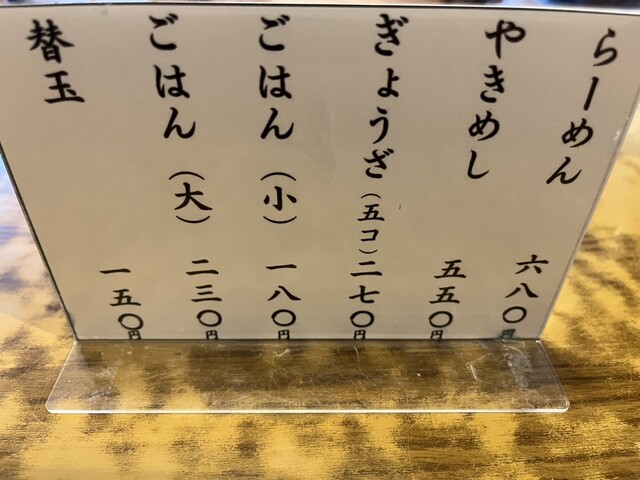 らーめん 六八〇円
やきめし 五五〇円
ぎょうざ（五コ）二七〇円
ごはん（小）一八〇円
ごはん（大）二三〇円
替玉 一五〇円